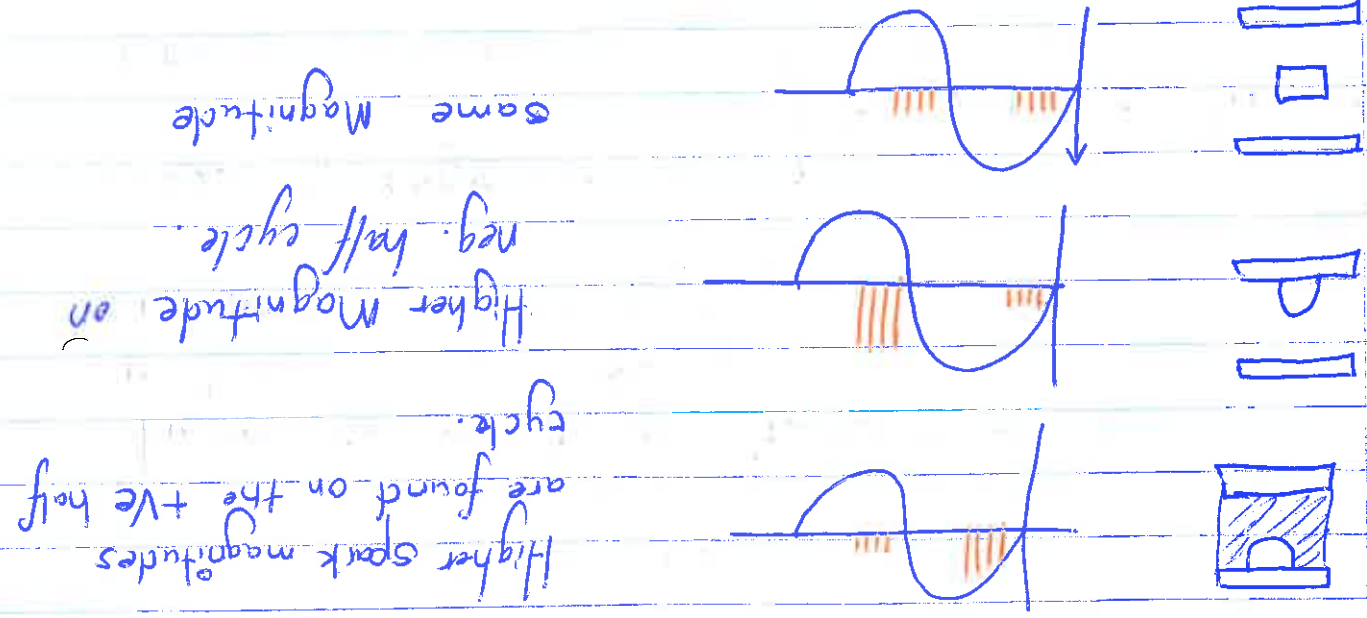 Higher spark magnitudes
are found on the +ve half
cycle.
Higher Magnitude on
neg. half cycle.
Same Magnitude